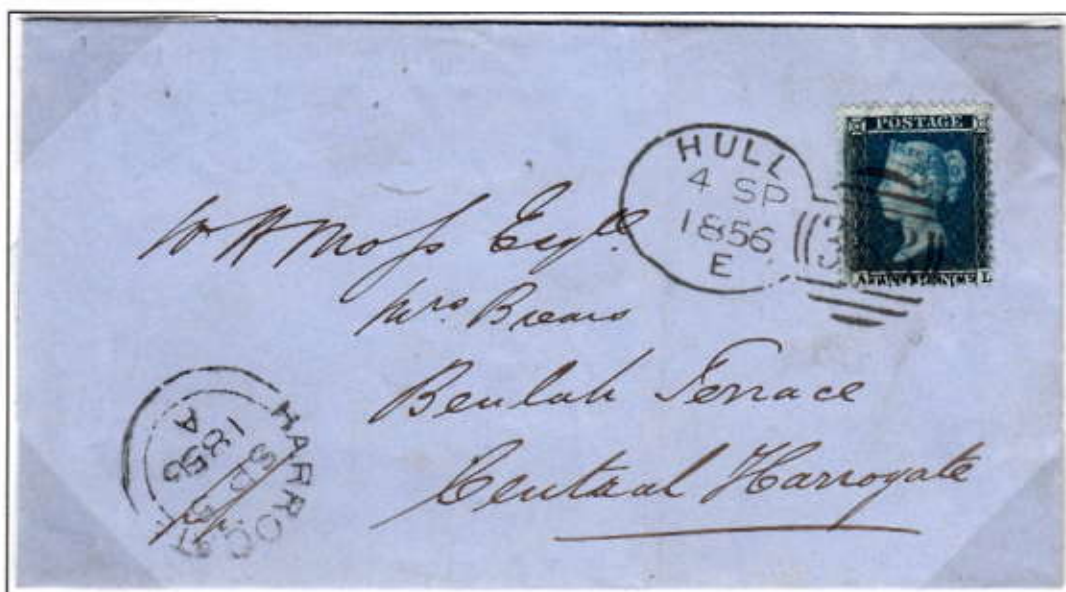 POSTAGE
HULL
4 SP
1856
E
W H Moss Esq
Mrs Brears
Beulah Terrace
Central Harrogate
HARROG
SP
1856
A